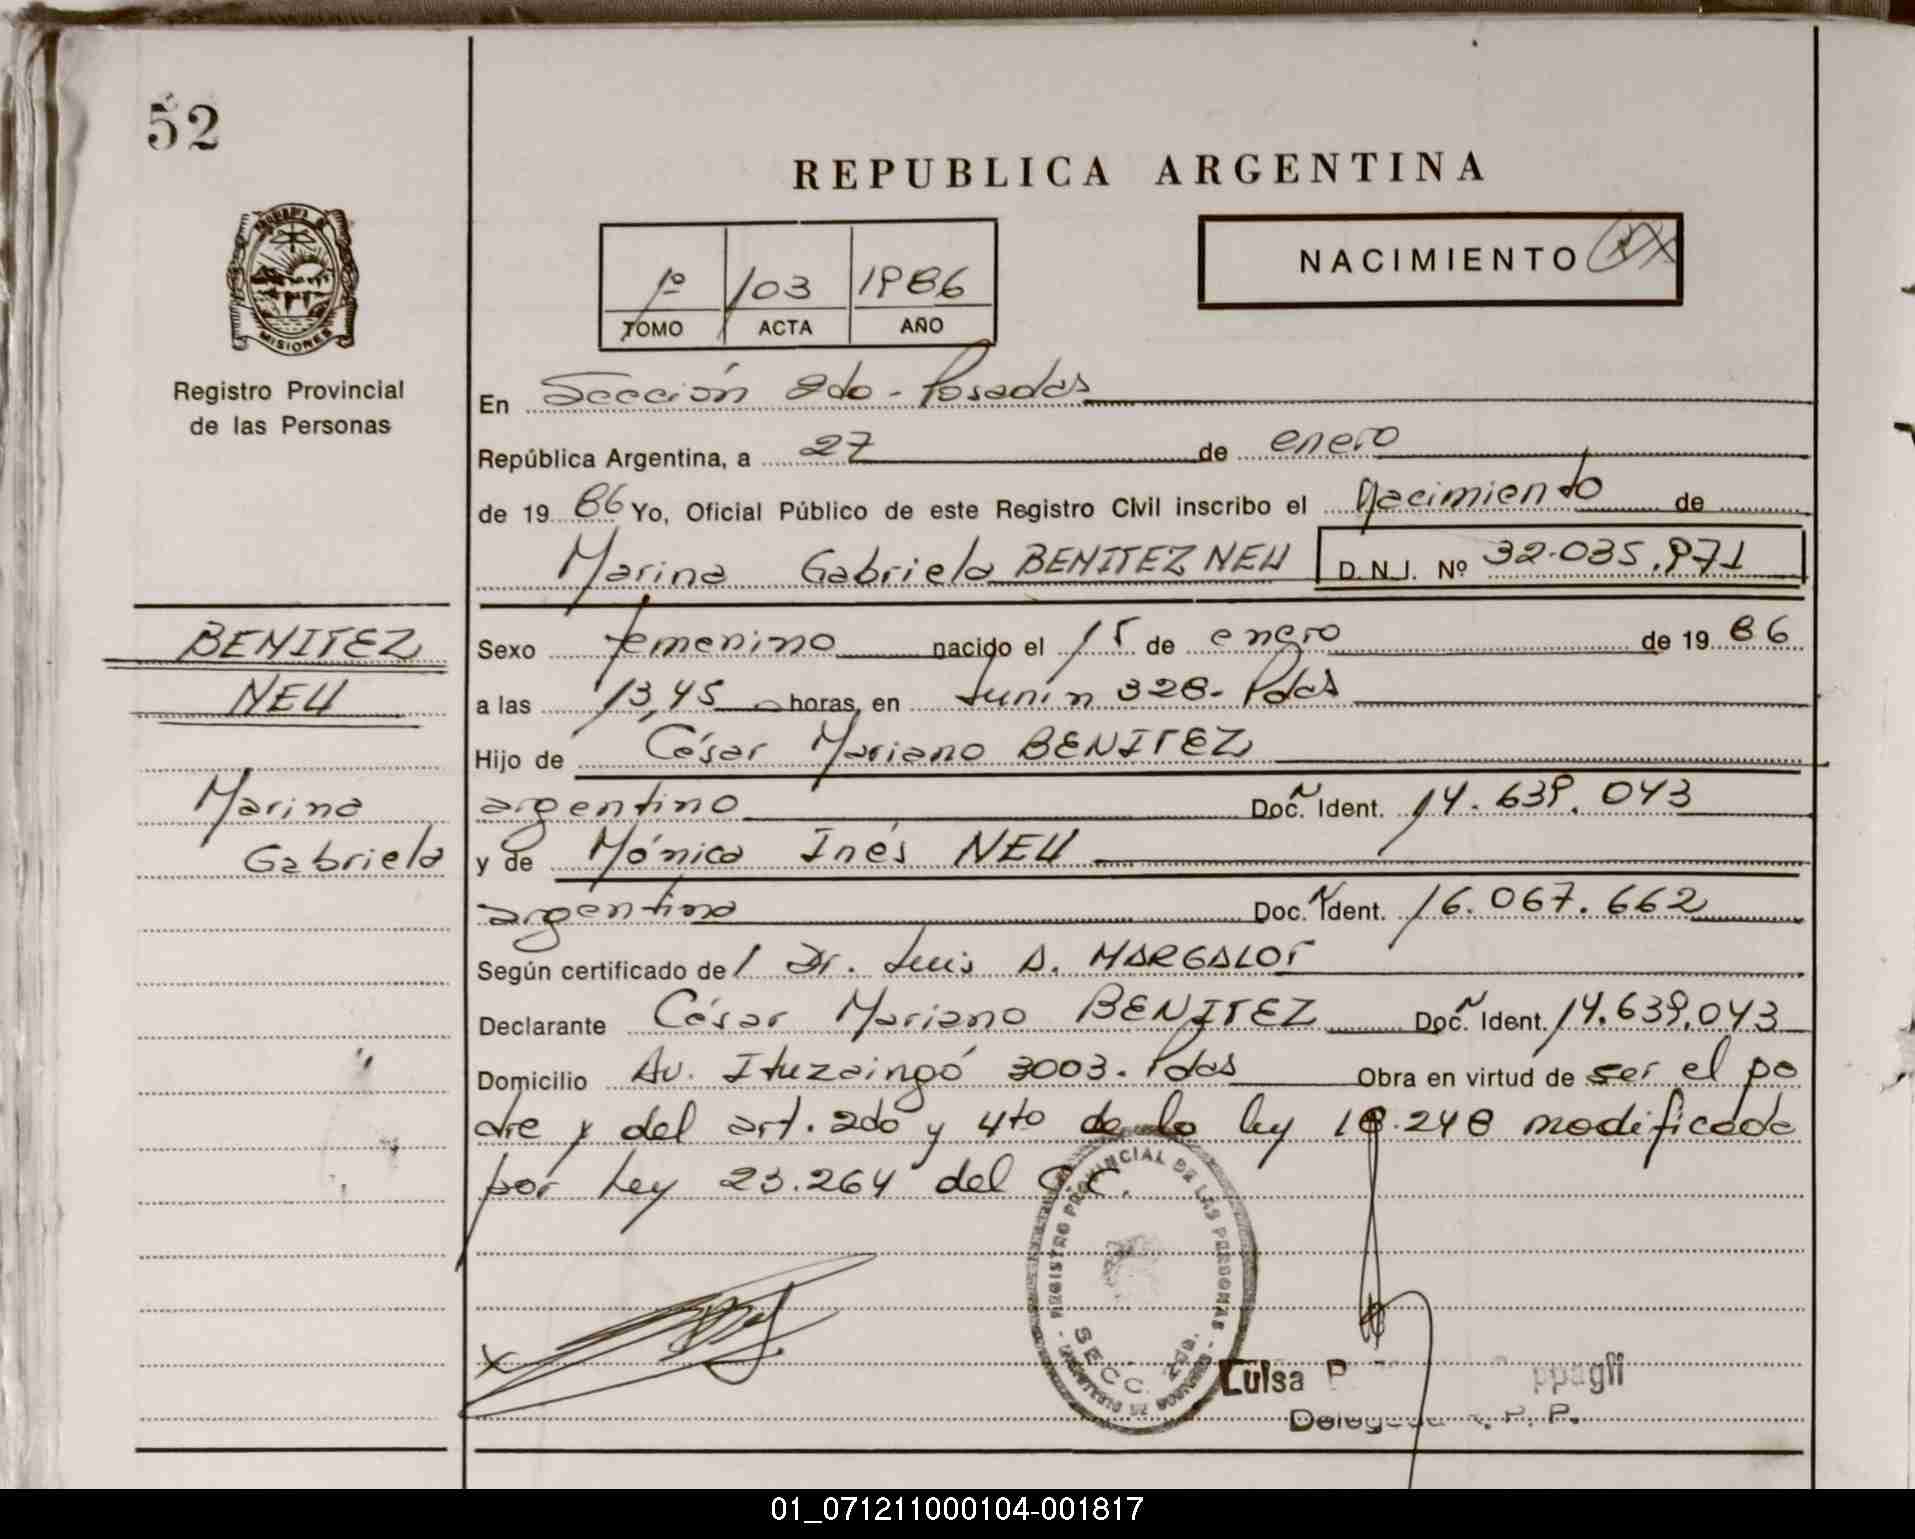 52
REPUBLICA ARGENTINA
MISIONES
Registro Provincial
de las Personas
1º 103 1986
TOMO ACTA AÑO
NACIMIENTO
En Sección 2do - Posadas
República Argentina, a 27 de enero
de 19 86 Yo, Oficial Público de este Registro Civil inscribo el Nacimiento de
Marina Gabriela BENITEZ NEU D.N.I. Nº 32.035.971
BENITEZ
NEU
Marina
Gabriela
Sexo femenino nacido el 15 de enero de 19 86
a las 13,45 horas, en Junín 328- Pdas
Hijo de César Mariano BENITEZ
argentino Doc. Ident. 14.639.043
y de Mónica Inés NEU
argentina Doc. Ident. 16.067.662
Según certificado de Dr. Luis A. MARGALOT
Declarante César Mariano BENITEZ Doc. Ident. 14.639.043
Domicilio Av. Ituzaingó 3003. Pdas Obra en virtud de ser el pa
dre y del art. 2do y 4to de la ley 18.248 modificada
por ley 23.264 del C.C.
REGISTRO PROVINCIAL DE LAS PERSONAS
SECC. 2da.
Luisa P
R. P. P.
01_071211000104-001817